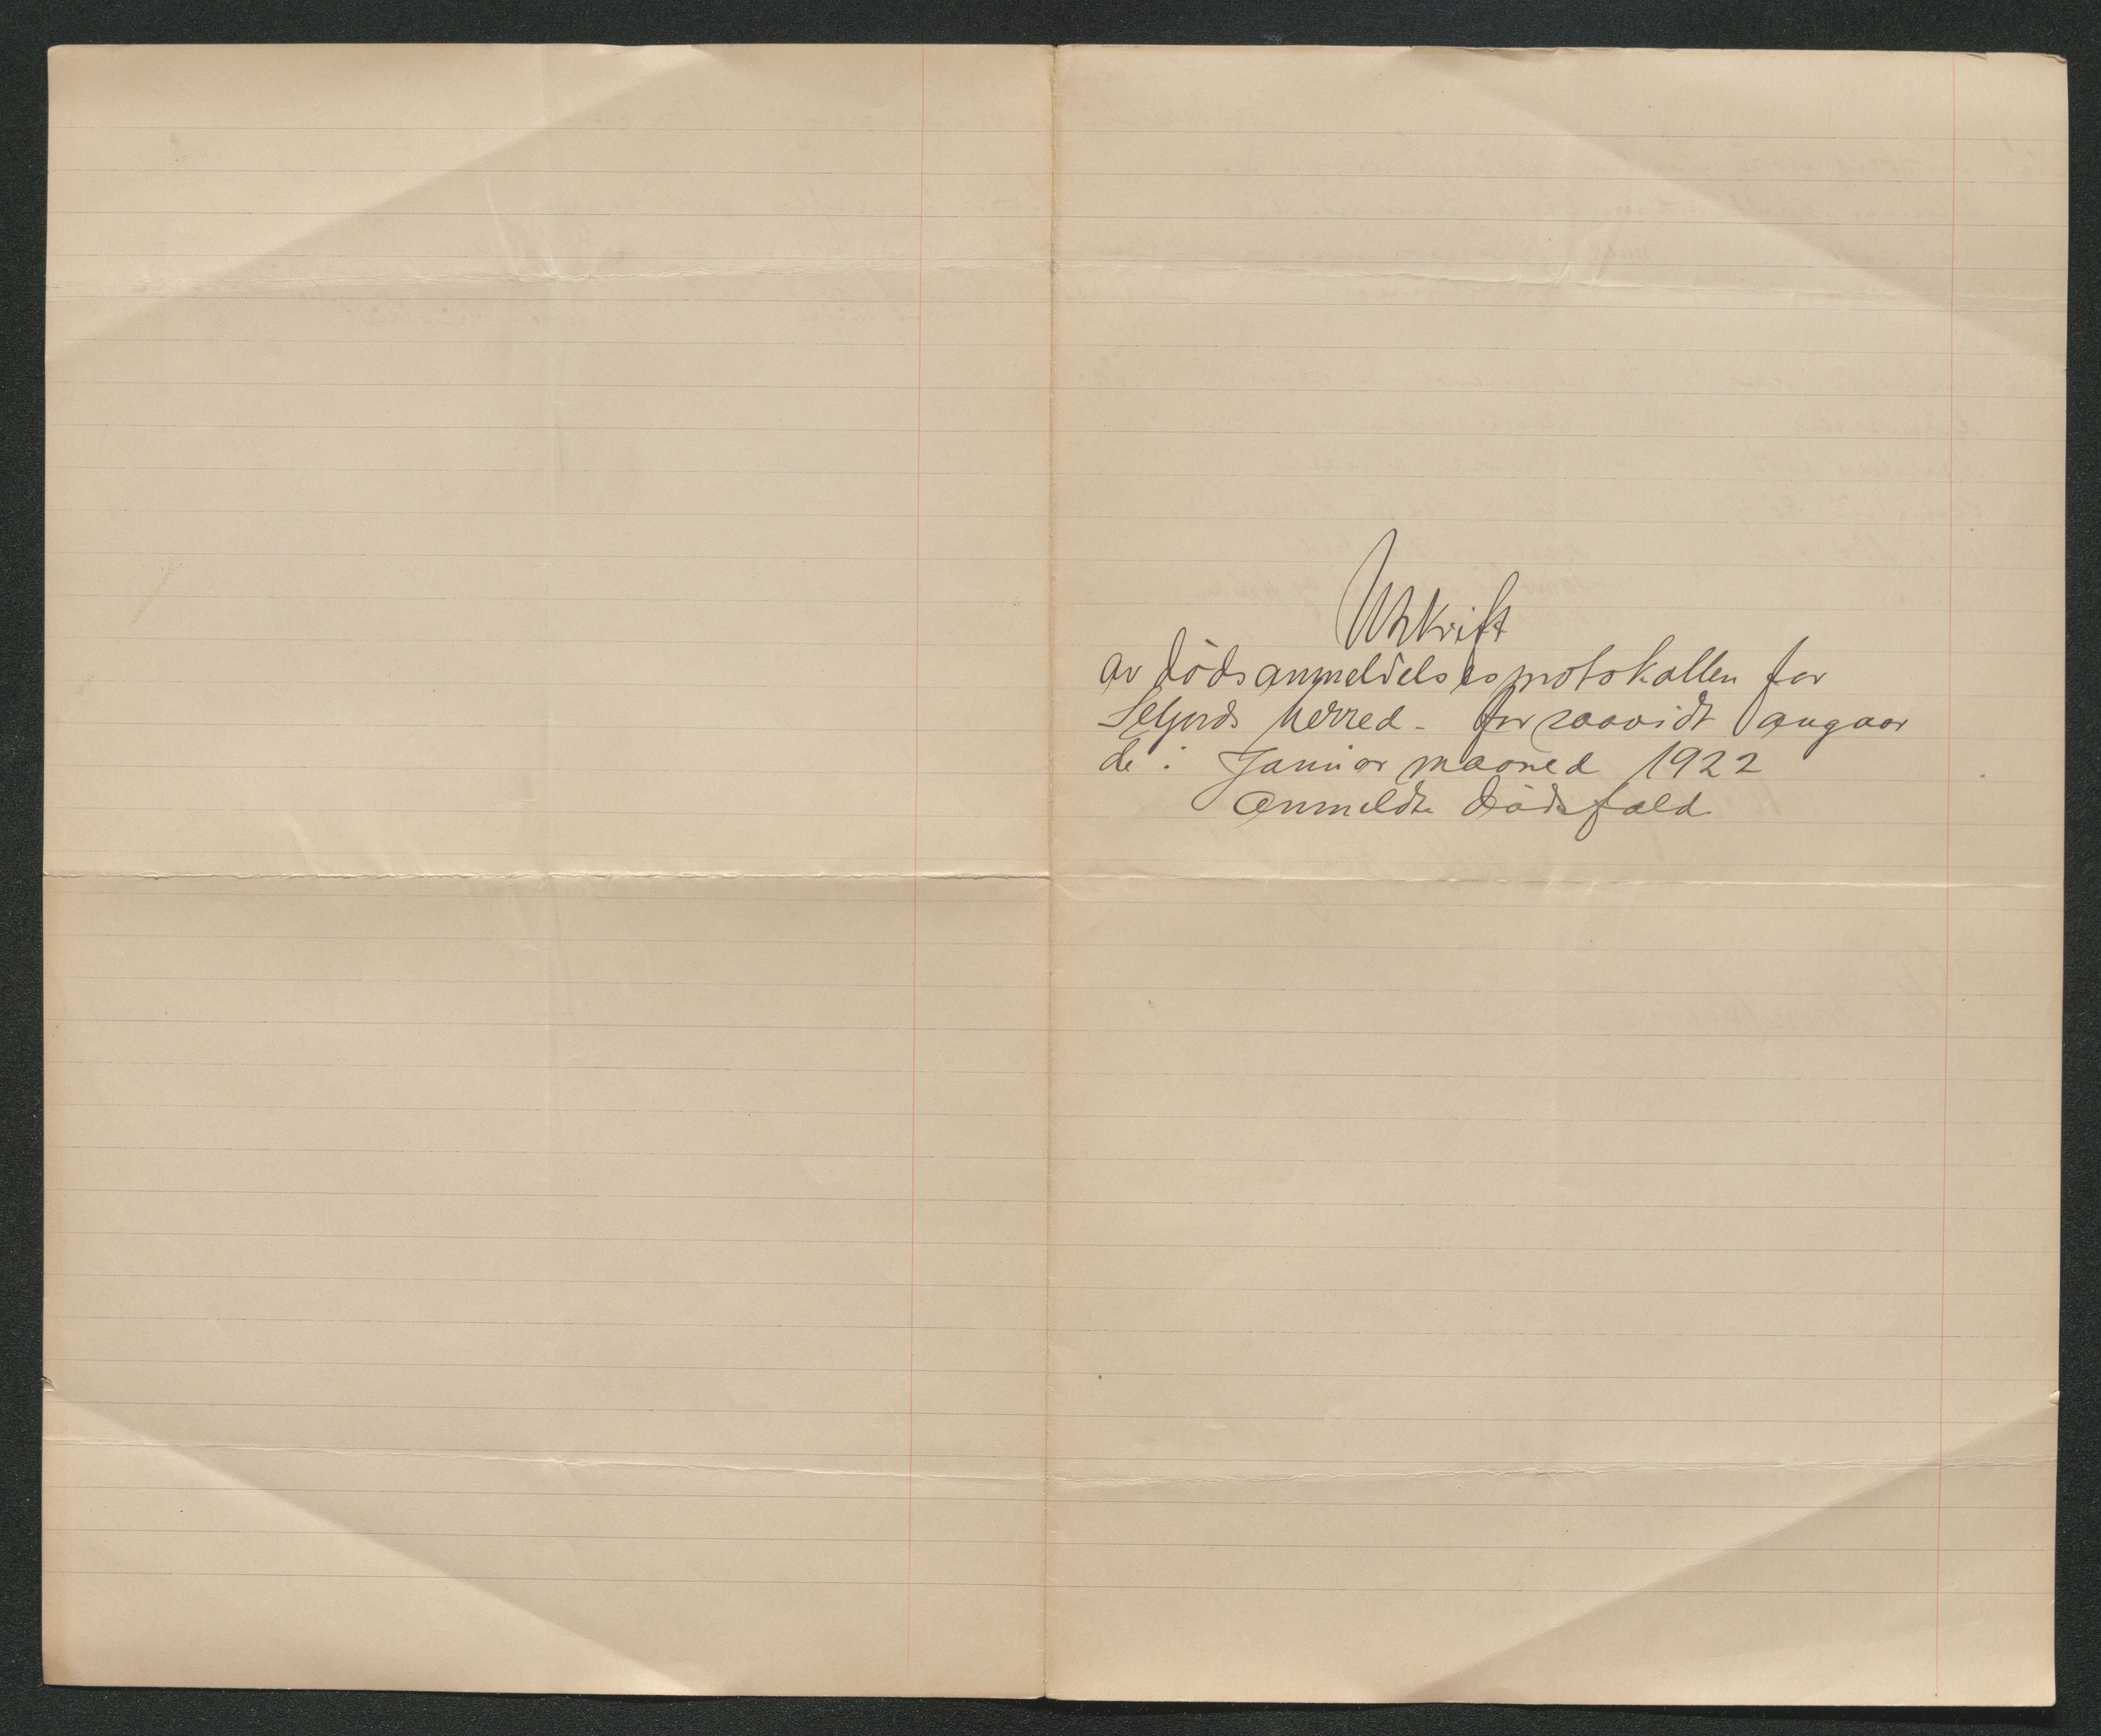 Utskrift
av dødsanmeldelsesprotokollen for
Seljords herred - forsaavidt angaar
de i Januar maaned 1922
anmeldte dødsfald.